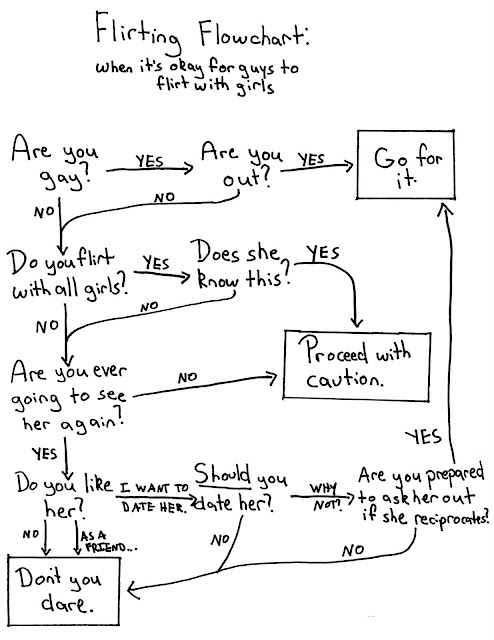 Flirting Flowchart:
when it's okay for guys to
flirt with girls
Are you
gay?
YES
Are you
out?
YES
Go for
it.
NO
NO
Do you flirt
with all girls?
YES
Does she
know this?
YES
NO
NO
Proceed with
caution.
Are you ever
going to see
her again?
NO
YES
YES
Do you like
her?
I WANT TO
DATE HER.
Should you
date her?
WHY
NOT?
Are you prepared
to ask her out
if she reciprocates?
NO
AS A
FRIEND...
NO
NO
Don't you
dare.